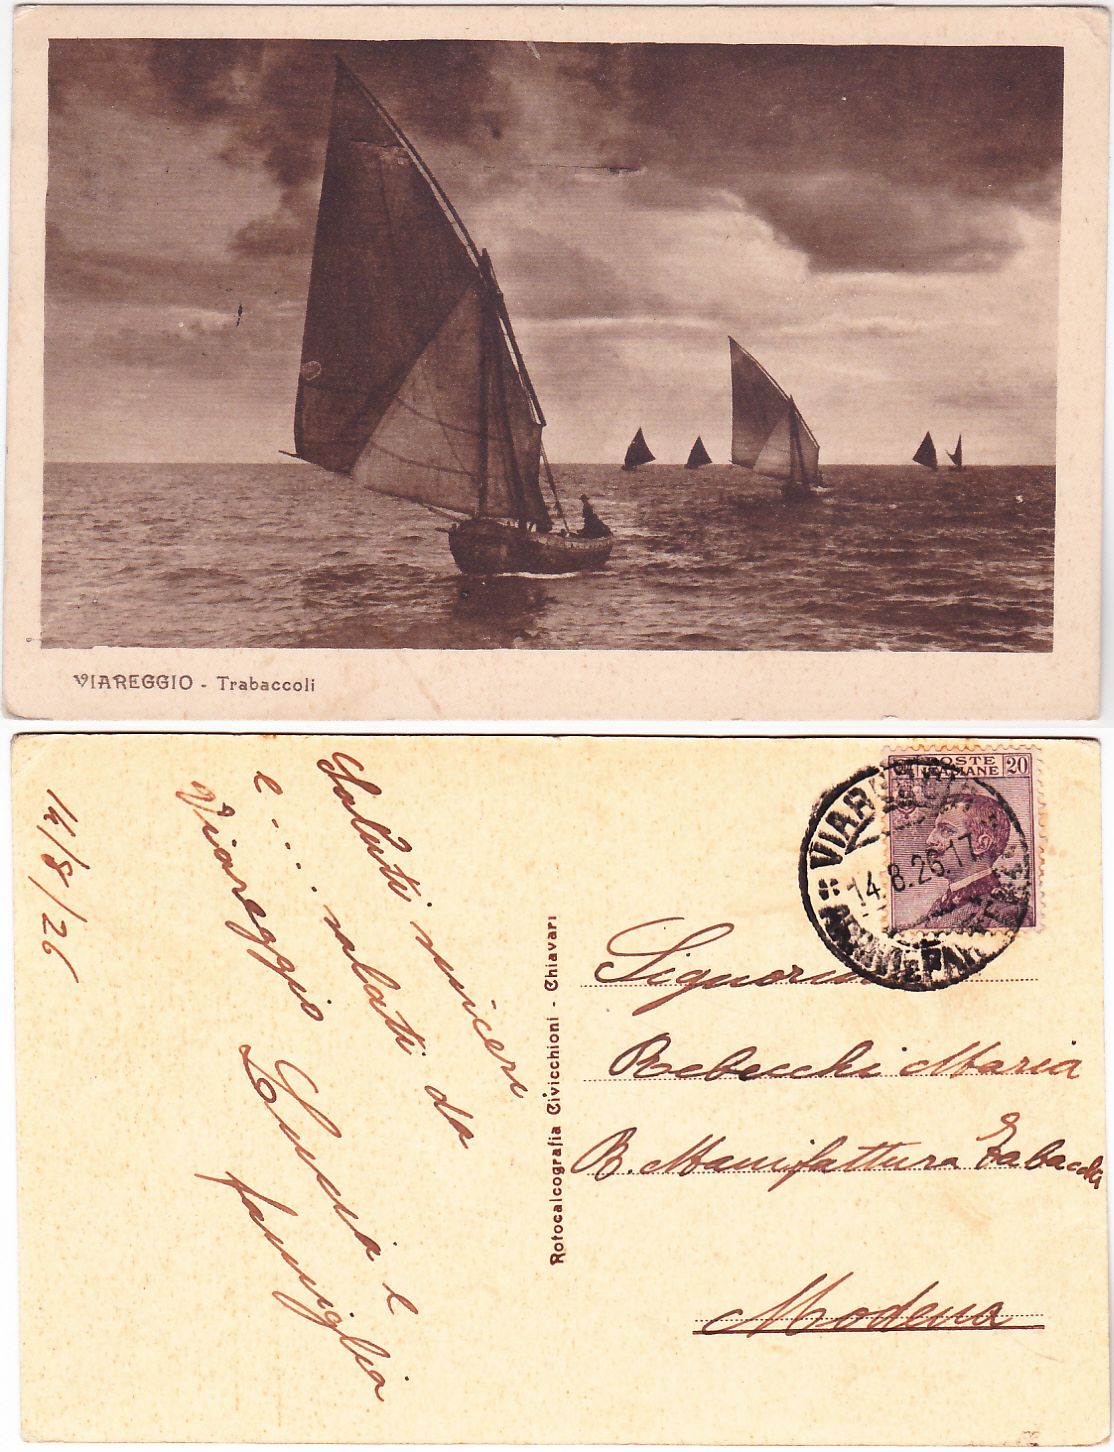 VIAREGGIO - Trabaccoli
Saluti sinceri
e.... salati da
Viareggio
Lucia e
famiglia
14/8/26
Rotocalcografia Civicchioni - Chiavari
POSTE
ITALIANE 20
VIAREGGIO
14.8.26.17
Signorina
Rebecchi Maria
R. Manifattura Tabacchi
Modena